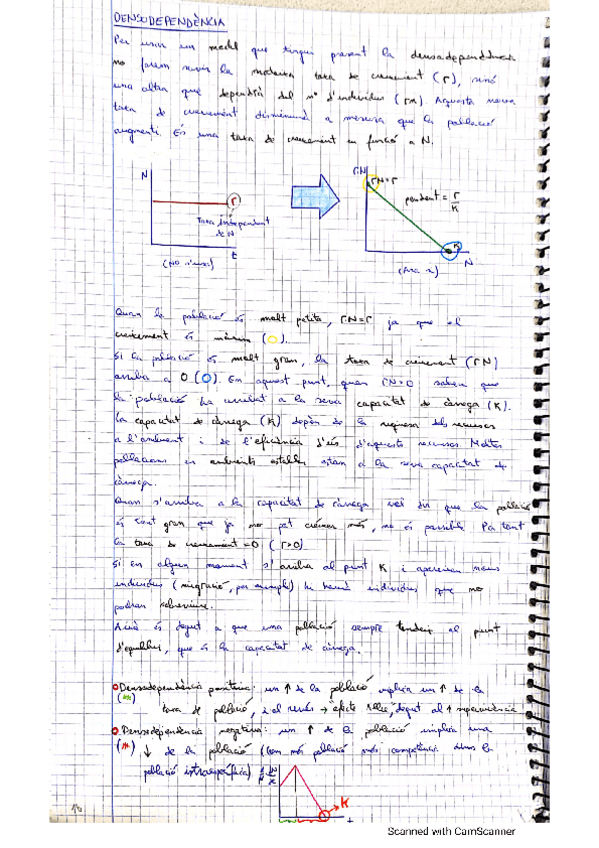 DENSODEPENDÈNCIA
Per usar un medi que tingui present la densodependència
no farem servir la mateixa taxa de creixement (r), sinó
una altra que dependrà del nº d'individus (rN). Aquesta nova
taxa de creixement disminuirà a mesura que la població
augmenti. És una taxa de creixement en funció a N.
N
r
Taxa independent
de N
t
(NO
rN
rN=r
pendent = r/K
K
N
Quan la població és molt petita, rN=r ja que el
creixement és màxim (O).
Si la població és molt gran, la taxa de creixement (rN)
arriba a 0 (O). En aquest punt, quan rN=0 sabem que
la població ha arribat a la seva capacitat de càrrega (K).
La capacitat de càrrega (K) depèn de la riquesa dels recursos
a l'ambient i de l'eficiència d'ús d'aquests recursos. Moltes
poblacions en ambients estables estan a la seva capacitat de
càrrega.
Quan s'arriba a la capacitat de càrrega vol dir que la població
és tant gran que ja no pot créixer més, no és possible. Per tant
la taxa de creixement =0 (r=0)
Si en algun moment s'arriba al punt K i apareixen nous
individus (migració, per exemple) hi haurà individus que no
podran sobreviure.
Això és degut a que una població sempre tendeix al punt
d'equilibri, que és la capacitat de càrrega.
Densodependència positiva: un ↑ de la població implica un ↑ de la
(*) taxa de població, i al revés → efecte Allee, degut al ↑ supervivència
Densodependència negativa: un ↑ de la població implica una
(*) ↓ de la població (com més població més competència dins la
població intraespecífica)
K
Scanned with CamScanner